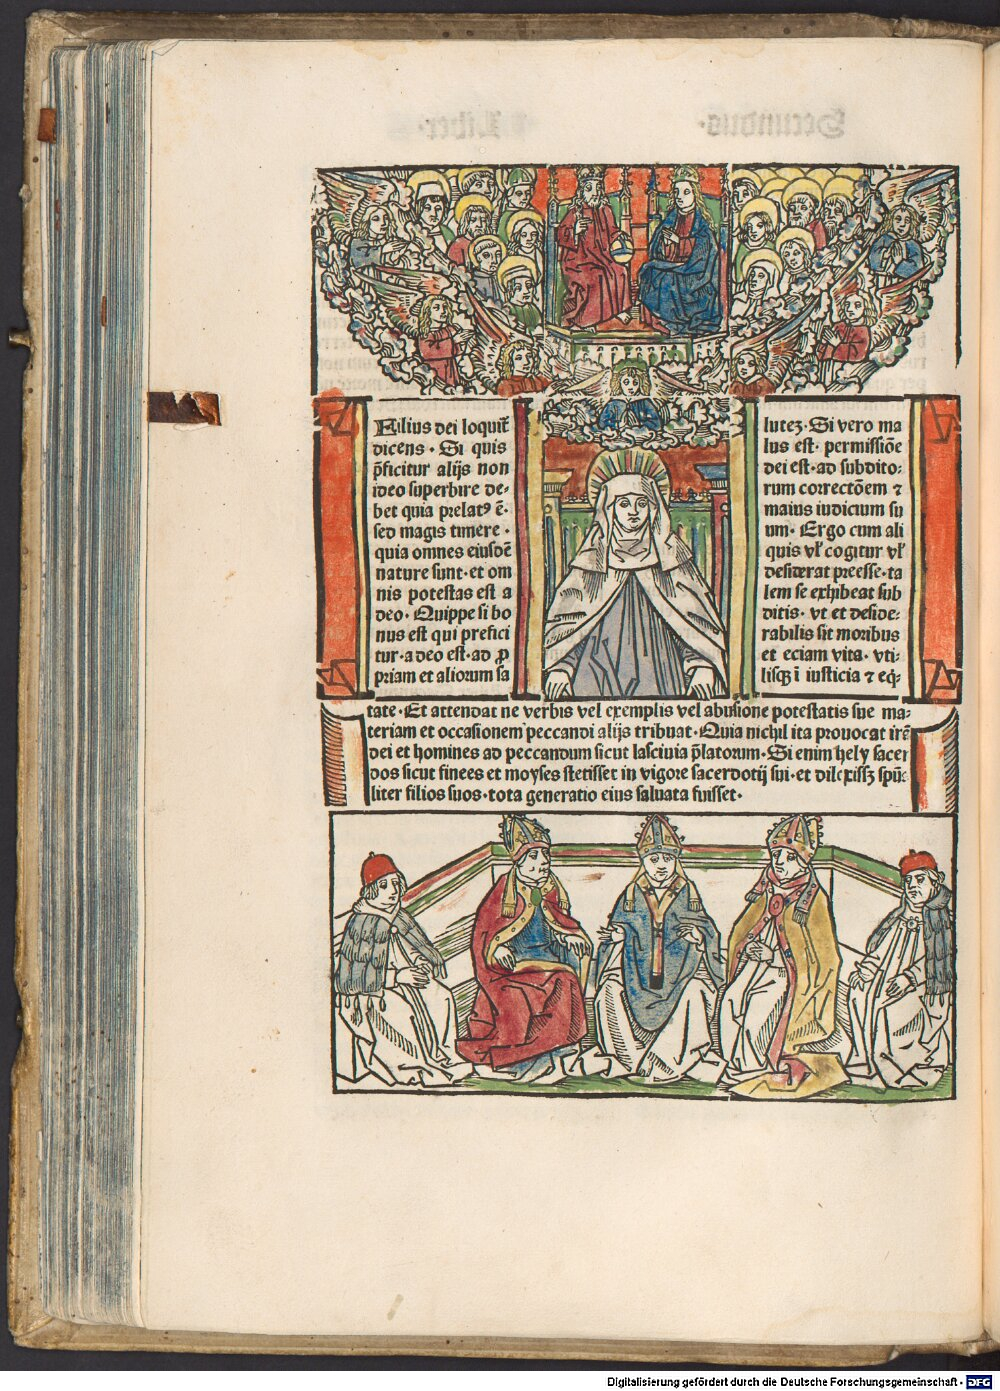 Filius dei loquit᷑
dicens · Si quis
p̄ficitur alijs non
ideo superbire de-
bet quia prelatꝰ ē·
sed magis timere ·
quia omnes eiusdē
nature sunt · et om
nis potestas est a
deo · Quippe si bo
nus est qui prefici
tur · a deo est · ad ꝓ
priam et aliorum sa
lutez · Si vero ma
lus est · permissiōe
dei est · ad subdito-
rum correctōem ⁊
maius iudicium su
um · Ergo cum ali
quis vl' cogitur vl'
desiderat preesse · ta
lem se exhibeat sub
ditis · vt et deside-
rabilis sit moribus
et eciam vita · vti-
lisqꝫ ī iusticia ⁊ eq̄-
tate · Et attendat ne verbis vel exemplis vel abusione potestatis sue ma-
teriam et occasionem peccandi alijs tribuat · Quia nichil ita prouocat irā
dei et homines ad peccandum sicut lasciuia p̄latorum · Si enim hely sacer
dos sicut finees et moyses stetisset in vigore sacerdotij sui · et dilexissꝫ spūa
liter filios suos · tota generatio eius saluata fuisset ·
Digitalisierung gefördert durch die Deutsche Forschungsgemeinschaft - DFG